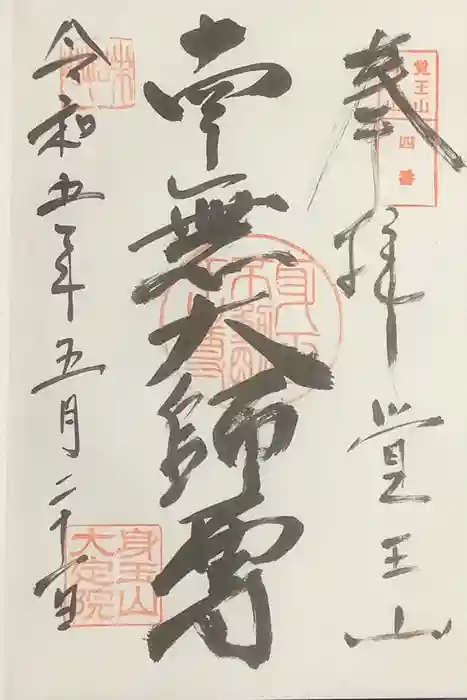 奉拝 覚王山
覚王山
四番
南無大師尊
令和五年五月二十
身玉山
大定院